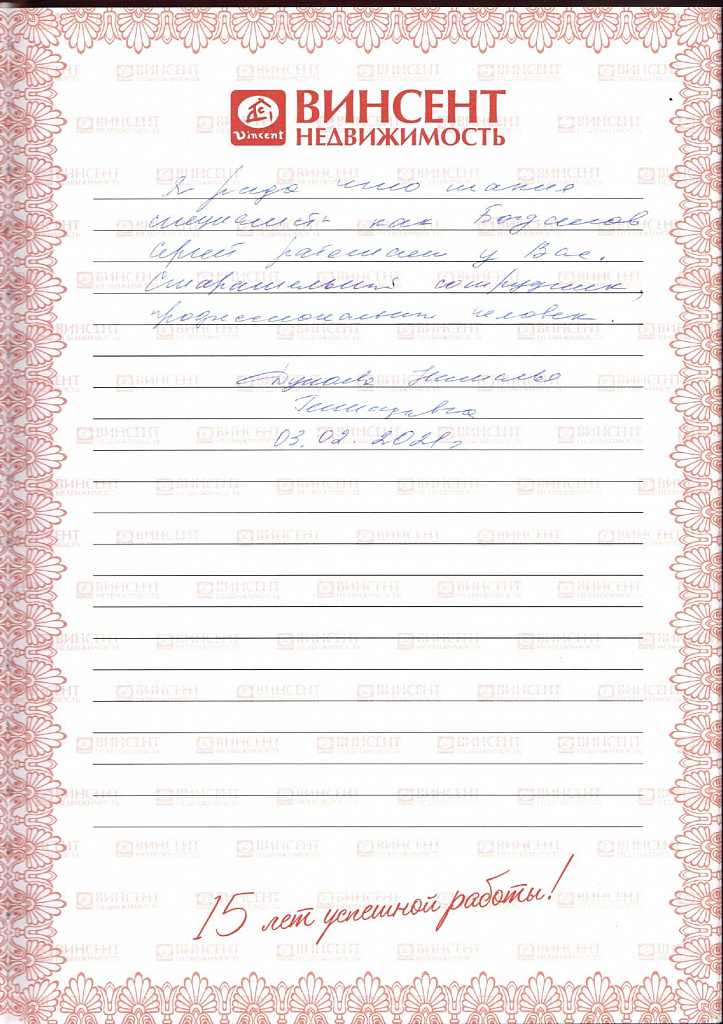 Vincent
ВИНСЕНТ
НЕДВИЖИМОСТЬ
Я рада что такие
специалисты как Богданов
Сергей работает у Вас.
Старательный сотрудник,
профессиональный человек.
Наталья
03.02.2021г
15 лет успешной работы!